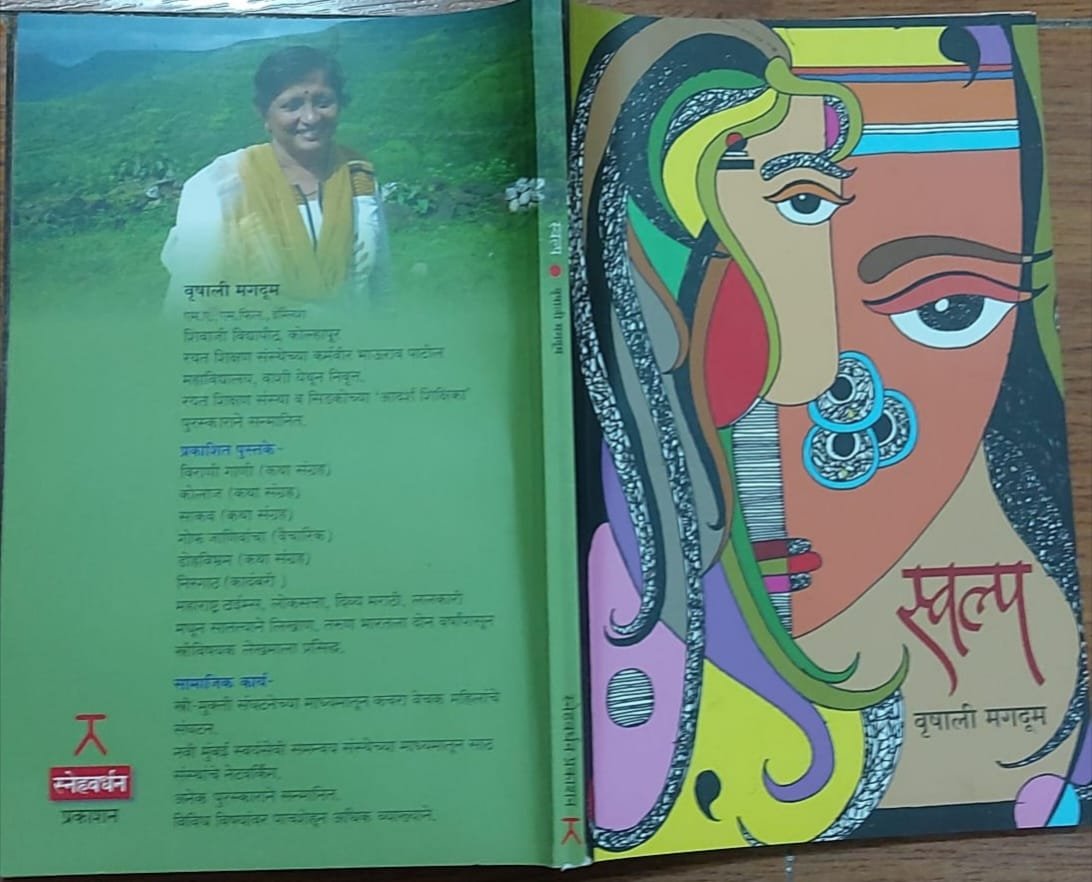 वृषाली मगदूम
एम.ए., एम.फिल., इंग्लिश
शिवाजी विद्यापीठ, कोल्हापूर
रयत शिक्षण संस्थेच्या कर्मवीर भाऊराव पाटील
महाविद्यालय, वाशी येथून निवृत्त.
रयत शिक्षण संस्था व सिडकोच्या 'आदर्श शिक्षिका'
पुरस्काराने सन्मानित.
प्रकाशित पुस्तके-
विराणी गाणी (कथा संग्रह)
कोलाज (कथा संग्रह)
साकव (कथा संग्रह)
गोफ जाणिवांचा (वैचारिक)
डोहविभ्रम (कथा संग्रह)
निरगाठ (कादंबरी )
महाराष्ट्र टाईम्स, लोकसत्ता, दिव्य मराठी, ललकारी
मधून सातत्याने लिखाण, तरुण भारतला दोन वर्षांपासून
स्त्रीविषयक लेखमाला प्रसिद्ध.
सामाजिक कार्य-
स्त्री-मुक्ती संघटनेच्या माध्यमातून कचरा वेचक महिलांचे
संघटन.
नवी मुंबई स्वयंसेवी समन्वय संस्थेच्या माध्यमातून साठ
संस्थांचे नेटवर्किंग.
अनेक पुरस्काराने सन्मानित.
विविध विषयांवर पाचशेहून अधिक व्याख्याने.
स्नेहवर्धन
प्रकाशन
स्वल्प वृषाली मगदूम
स्नेहवर्धन प्रकाशन
स्वल्प
वृषाली मगदूम